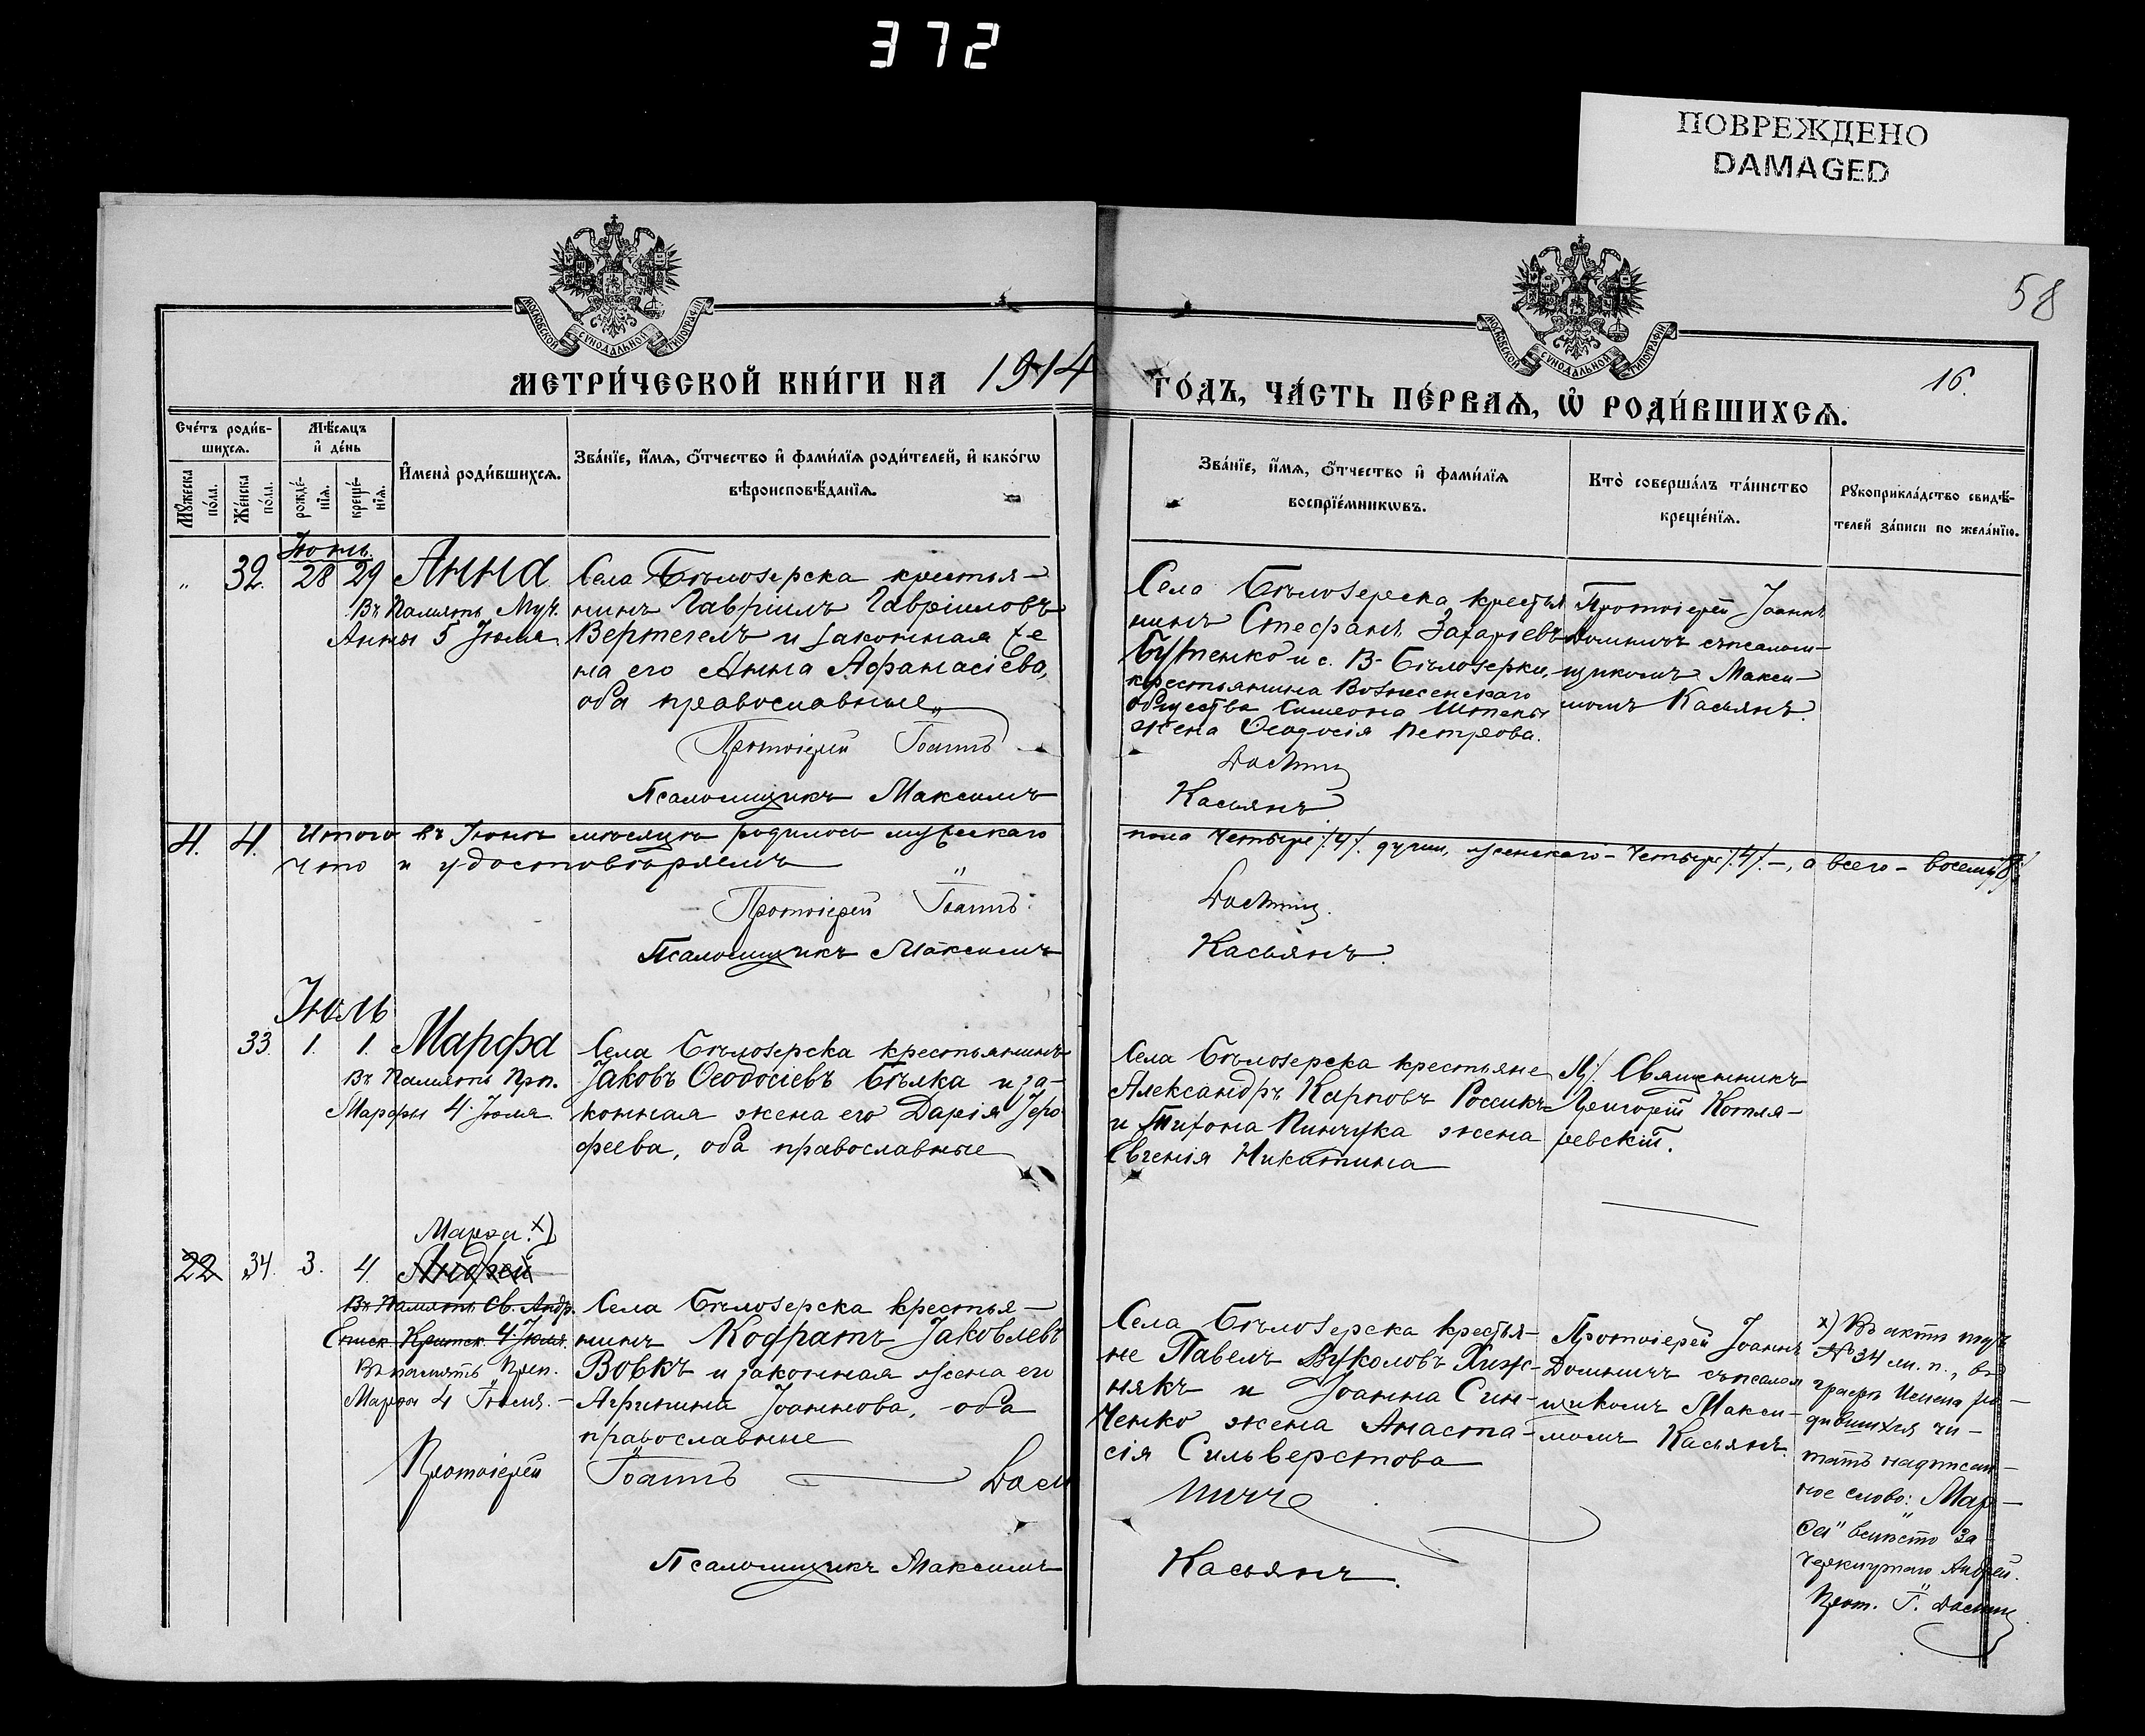 372
ПОВРЕЖДЕНО
DAMAGED
58
МОСКОВСКОЙ СѴНОДАЛЬНОЙ ТИПОГРАФІИ
МОСКОВСКОЙ СѴНОДАЛЬНОЙ ТИПОГРАФІИ
МЕТРИ́ЧЕСКОЙ КНИ́ГИ НА 1914
ГО́ДЪ, ЧА́СТЬ ПЕ́РВАѦ, Ѡ҆ РОДИ́ВШИХСѦ.
16.
Сче́тъ роди́в-
шихсѧ.
Мѣ́сѧцъ
и҆ де́нь
Мꙋ́жеска
по́ла.
Же́нска
по́ла.
рожде́-
нїѧ.
креще́-
нїѧ.
И҆мена̀ роди́вшихсѧ.
Зва́нїе, и҆́мѧ, ѻ҆́тчество и҆ фами́лїѧ роди́телей, и҆ како́гѡ
вѣроисповѣ́данїѧ.
Зва́нїе, и҆́мѧ, ѻ҆́тчество и҆ фами́лїѧ
воспрїе́мникѡвъ.
Кто̀ соверша́лъ та́инство
креще́нїѧ.
Рꙋкоприкла́дство свидѣ́-
телей за́писи по жела́нїю.
Іюнь.
" 32. 28 29 Анна
Въ память Муч.
Анны 5 Іюля.
Села Бѣлозерска крестья-
нинъ Гавріилъ Гавріиловъ
Вертегелъ и законная же
на его Анна Афанасіева,
оба православные
Протоіерей Іоаннъ
Псаломщикъ Максимъ
Села Бѣлозерска крестья
нинъ Стефанъ Захаріевъ
Бутенко и с. В-Бѣлозерки,
крестьянина Вознесенскаго
общества Симеона
жена Ѳеодосія Петрова.
Касьянъ
Протоіерей Іоаннъ
съ псалом-
щикомъ Макси-
момъ Касьянъ.
4. 4. Итого въ Іюнѣ мѣсяцѣ родилось мужескаго
пола четыре /4/. души, женскаго - четыре /4/. -, а всего - восемь /8/
что и удостовѣряемъ
Протоіерей Іоаннъ
Псаломщикъ Максимъ
Касьянъ.
Іюль
33. 1. 1. Марфа
Въ память Прп.
Марфы 4 Іюля
Села Бѣлозерска крестьянинъ
Іаковъ Ѳеодосіевъ Бѣлка и за-
конная жена его Дарія Іеро
феева, оба православные
Села Бѣлозерска крестьяне
Александръ Карповъ Россикъ
и Тихона Пинчука жена
Евгенія Никитина
Священникъ
Григорій Котля-
ревскій.
Марѳа. х)
22 34. 3. 4. Андрей
Въ память Св. Андр.
Еписк. Критск. 4 Іюля.
Въ память Преп.
Марѳы 4 Іюля. -
Села Бѣлозерска крестья-
нинъ Кодратъ Іаковлевъ
Вовкъ и законная жена его
Агрипина Іоаннова, оба
православные
Протоіерей Іоаннъ
Псаломщикъ Максимъ
Села Бѣлозерска крестья-
не Павелъ Вуколовъ Хиж-
някъ и Іоанна Син-
ченко жена Анаста-
сія Сильверстова
Касьянъ.
Протоіерей Іоаннъ
съ псалом
щикомъ Макси-
момъ Касьянъ.
х) Въ актѣ подъ
№ 34 ж. п., въ
графѣ имена ро-
дившихся чи-
тать надписан-
ное слово: „Мар-
ѳа" вмѣсто за
черкнутаго Андрей.
Прот. І.